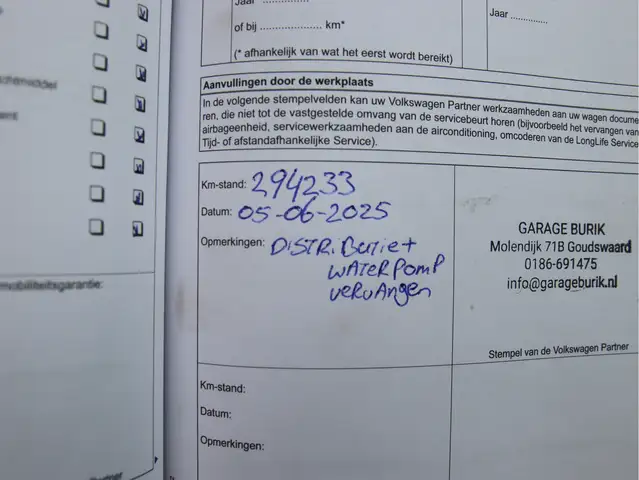 of bij .................... km*
Jaar ............
(* afhankelijk van wat het eerst wordt bereikt)
Aanvullingen door de werkplaats
In de volgende stempelvelden kan uw Volkswagen Partner werkzaamheden aan uw wagen docume
ren, die niet tot de vastgestelde omvang van de servicebeurt horen (bijvoorbeeld het vervangen van
airbageenheid, servicewerkzaamheden aan de airconditioning, omcoderen van de LongLife Service
Tijd- of afstandafhankelijke Service).
Km-stand: 294233
Datum: 05-06-2025
Opmerkingen: DISTRIBUTIE +
WATERPOMP
VERVANGEN
GARAGE BURIK
Molendijk 71B Goudswaard
0186-691475
info@garageburik.nl
Stempel van de Volkswagen Partner
Km-stand:
Datum:
Opmerkingen:
mobiliteitsgarantie: